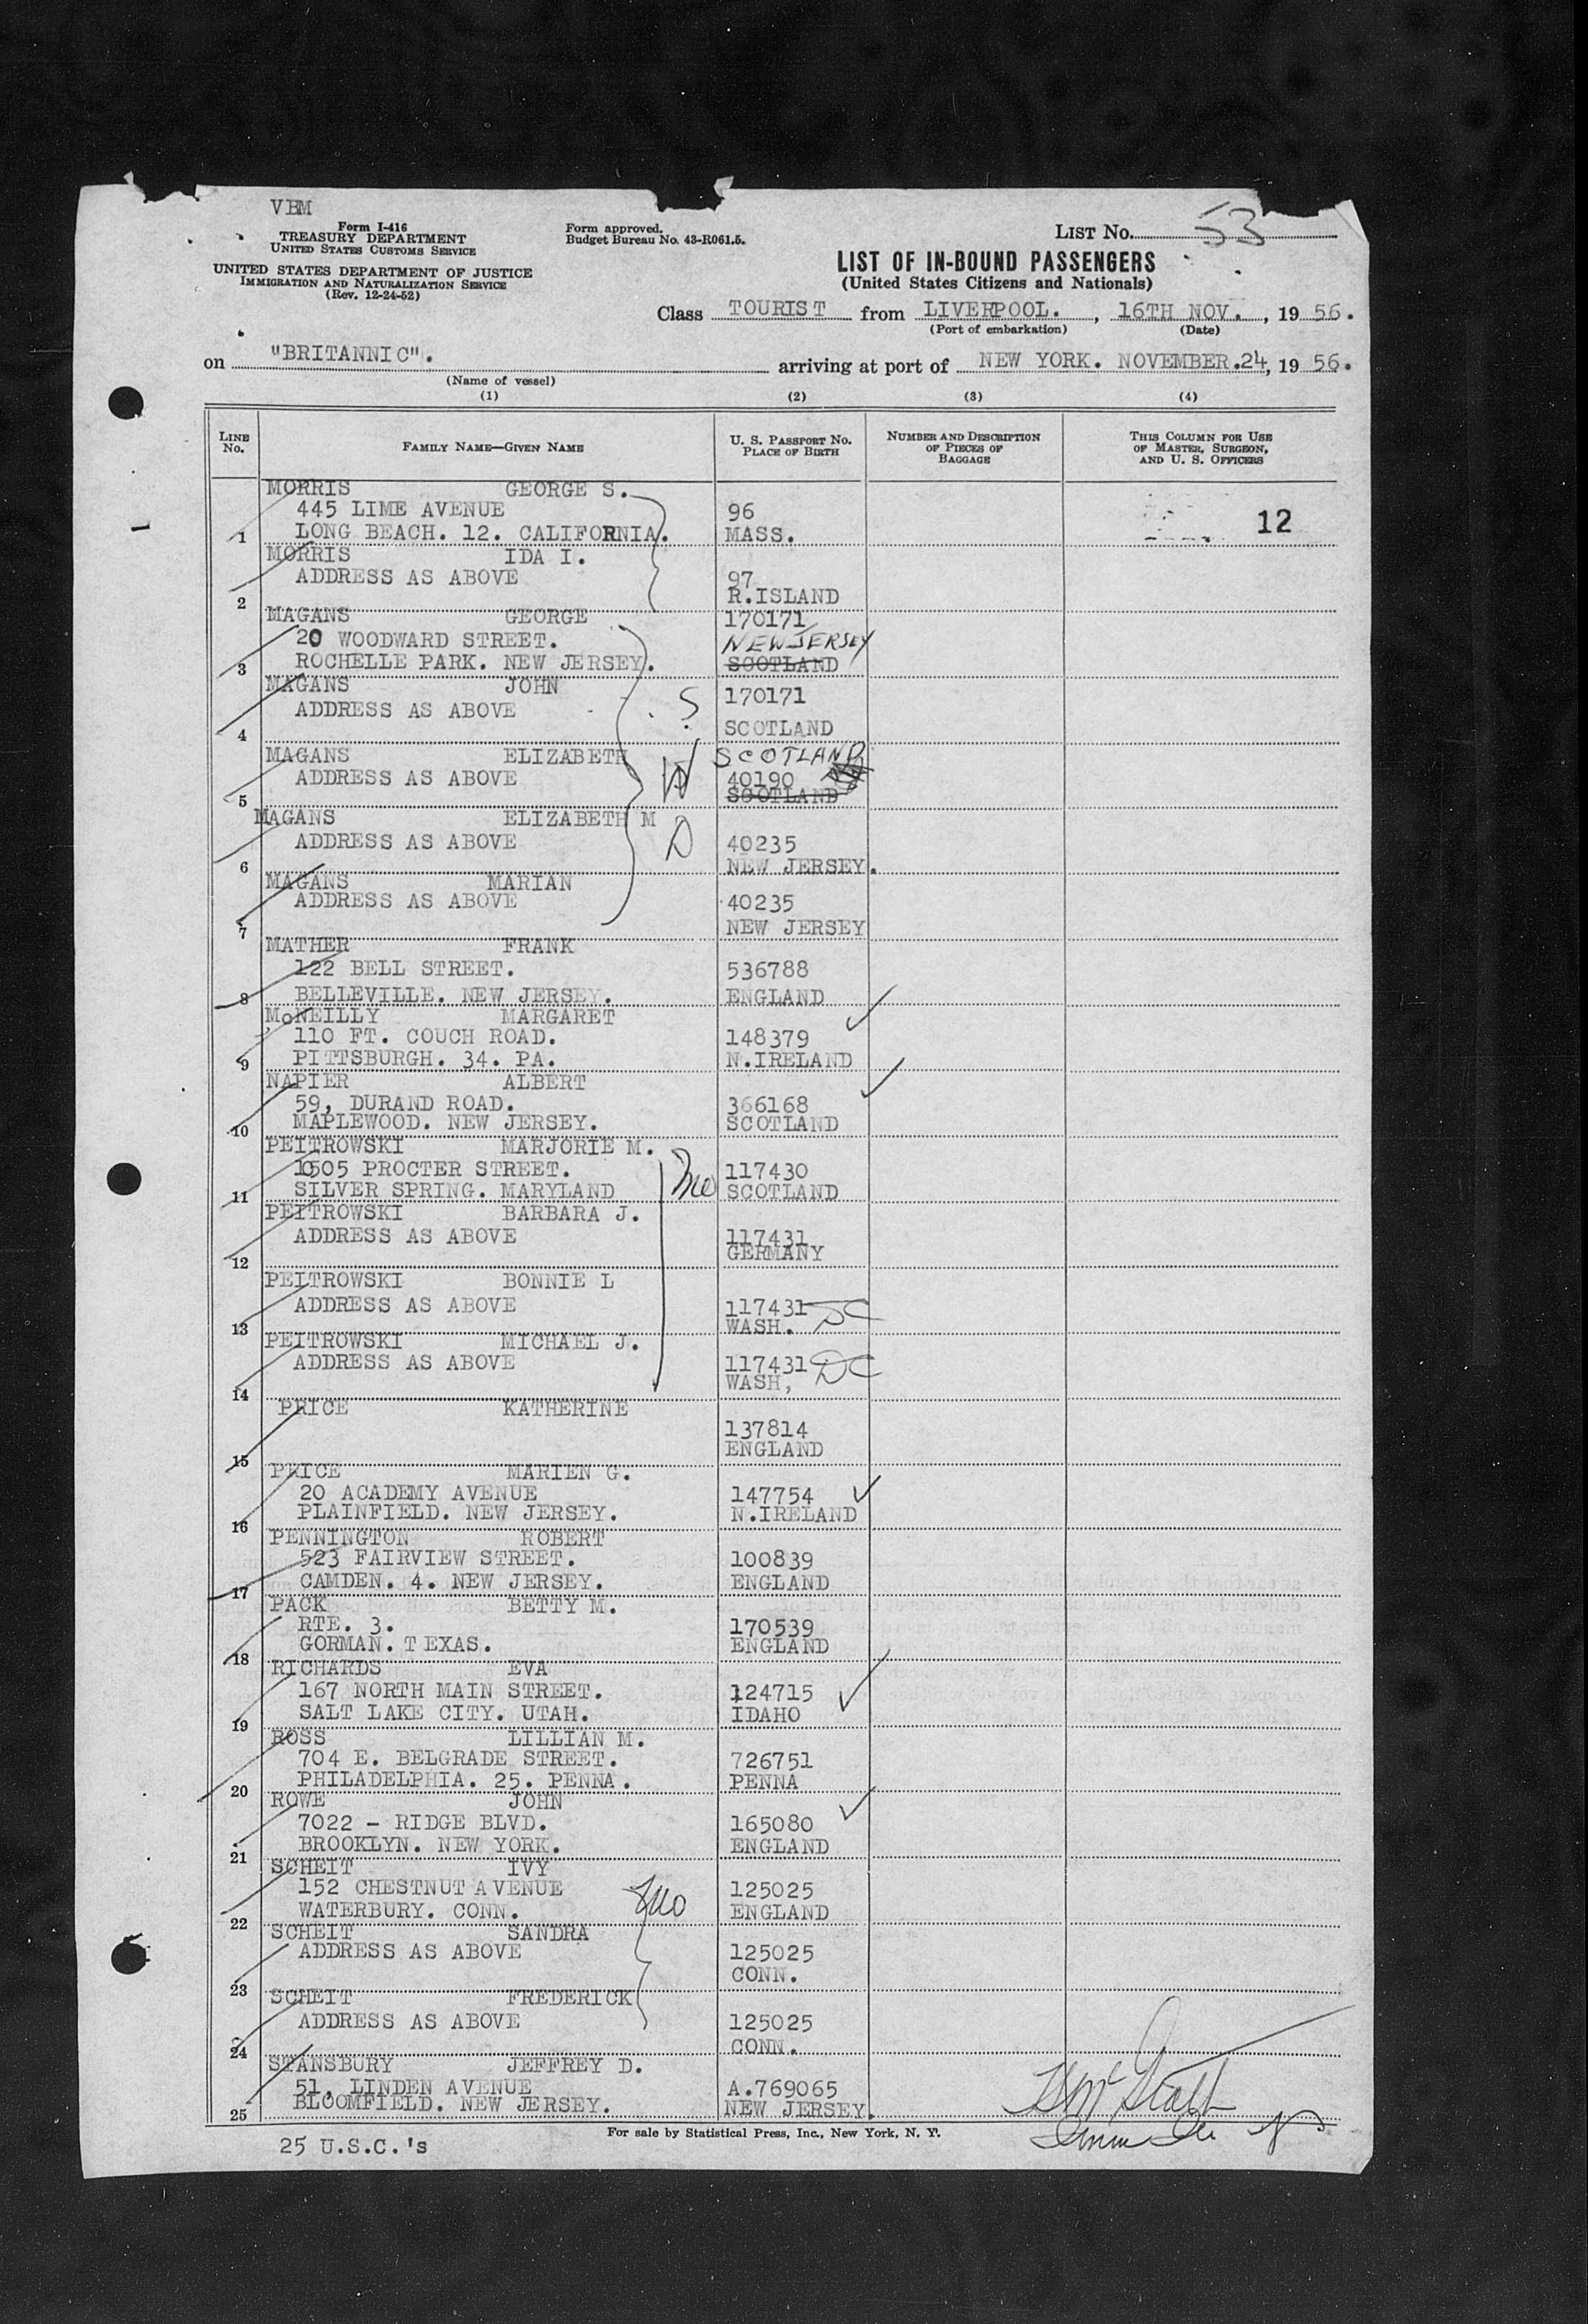 VBM
Form I-416
TREASURY DEPARTMENT
UNITED STATES CUSTOMS SERVICE
UNITED STATES DEPARTMENT OF JUSTICE
IMMIGRATION AND NATURALIZATION SERVICE
(Rev. 12-24-52)
Form approved.
Budget Bureau No. 43-R061.5.
LIST No. 53
LIST OF IN-BOUND PASSENGERS
(United States Citizens and Nationals)
Class TOURIST from LIVERPOOL. , 16TH NOV. , 19 56.
(Port of embarkation) (Date)
on "BRITANNIC". arriving at port of NEW YORK. NOVEMBER.24, 19 56.
(Name of vessel)
(1) (2) (3) (4)
LINE No. FAMILY NAME—GIVEN NAME U. S. PASSPORT No. PLACE OF BIRTH NUMBER AND DESCRIPTION OF PIECES OF BAGGAGE THIS COLUMN FOR USE OF MASTER, SURGEON, AND U. S. OFFICERS
MORRIS GEORGE S.
445 LIME AVENUE 96 12
1 LONG BEACH. 12. CALIFORNIA. MASS.
MORRIS IDA I.
ADDRESS AS ABOVE 97
2 R.ISLAND
MAGANS GEORGE 170171
20 WOODWARD STREET. NEW JERSEY
3 ROCHELLE PARK. NEW JERSEY. SCOTLAND
MAGANS JOHN 170171
ADDRESS AS ABOVE S
4 SCOTLAND
MAGANS ELIZABETH SCOTLAND
ADDRESS AS ABOVE W 40190
5 SCOTLAND
MAGANS ELIZABETH M
ADDRESS AS ABOVE D 40235
6 NEW JERSEY.
MAGANS MARIAN
ADDRESS AS ABOVE 40235
7 NEW JERSEY
MATHER FRANK
122 BELL STREET. 536788
8 BELLEVILLE. NEW JERSEY. ENGLAND
McNEILLY MARGARET
110 FT. COUCH ROAD. 148379
9 PITTSBURGH. 34. PA. N.IRELAND
NAPIER ALBERT
59, DURAND ROAD. 366168
10 MAPLEWOOD. NEW JERSEY. SCOTLAND
PEITROWSKI MARJORIE M.
1505 PROCTER STREET. 117430
11 SILVER SPRING. MARYLAND SCOTLAND
PEITROWSKI BARBARA J.
ADDRESS AS ABOVE 117431
12 GERMANY
PEITROWSKI BONNIE L
ADDRESS AS ABOVE 117431
13 WASH. DC
PEITROWSKI MICHAEL J.
ADDRESS AS ABOVE 117431 DC
14 WASH,
PRICE KATHERINE
137814
15 ENGLAND
PRICE MARIEN G.
20 ACADEMY AVENUE 147754
16 PLAINFIELD. NEW JERSEY. N.IRELAND
PENNINGTON ROBERT
523 FAIRVIEW STREET. 100839
17 CAMDEN. 4. NEW JERSEY. ENGLAND
PACK BETTY M.
RTE. 3. 170539
18 GORMAN. TEXAS. ENGLAND
RICHARDS EVA
167 NORTH MAIN STREET. 124715
19 SALT LAKE CITY. UTAH. IDAHO
ROSS LILLIAN M.
704 E. BELGRADE STREET. 726751
20 PHILADELPHIA. 25. PENNA. PENNA
ROWE JOHN
7022 - RIDGE BLVD. 165080
21 BROOKLYN. NEW YORK. ENGLAND
SCHEIT IVY
152 CHESTNUT AVENUE 125025
22 WATERBURY. CONN. ENGLAND
SCHEIT SANDRA
ADDRESS AS ABOVE 125025
23 CONN.
SCHEIT FREDERICK
ADDRESS AS ABOVE 125025
24 CONN.
STANSBURY JEFFREY D.
51, LINDEN AVENUE A.769065
25 BLOOMFIELD. NEW JERSEY. NEW JERSEY.
25 U.S.C.'s
For sale by Statistical Press, Inc., New York, N. Y.